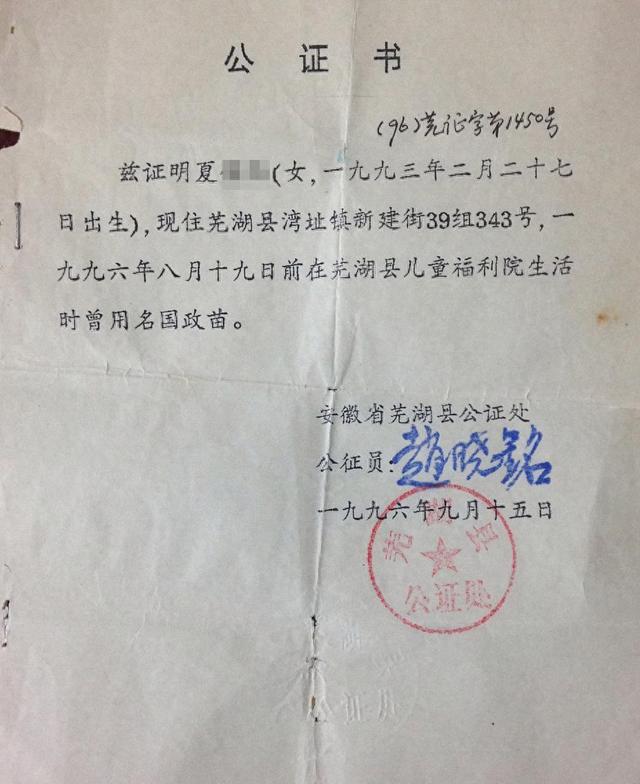 公证书
(96)芜证字第1450号
兹证明夏(女,一九九三年二月二十七
日出生),现住芜湖县湾址镇新建街39组343号,一
九九六年八月十九日前在芜湖县儿童福利院生活
时曾用名国政苗。
安徽省芜湖县公证处
公征员:赵晓铭
一九九六年九月十五日
芜湖县
公证处